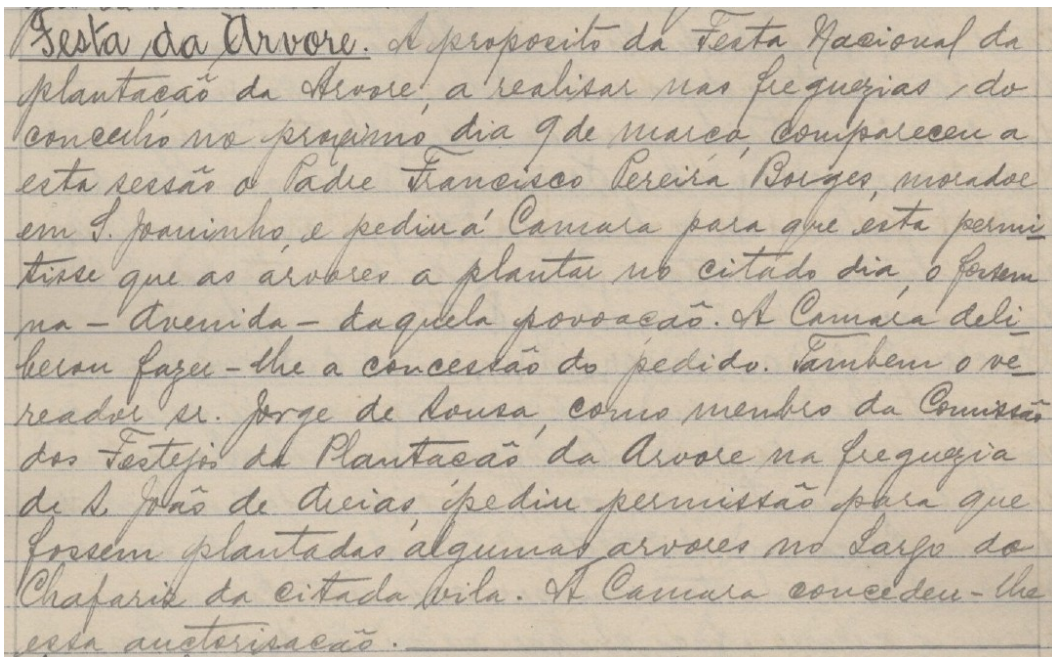 Festa da Arvore. A proposito da Festa Nacional da
plantacão da Arvore, a realisar nas freguezias do
concelho no proximo dia 9 de marco, compareceu a
esta sessão o Padre Francisco Pereira Borges, morador
em S. Joaninho e pediu á Camara para que esta permi-
tisse que as arvores a plantar no citado dia, o fossem
na - Avenida - daquela povoacão. A Camara deli-
berou fazer-lhe a concessão do pedido. Tambem o ve-
reador sr. Jorge de Sousa, como membro da Comissão
dos Festejos da Plantacão da Arvore na freguezia
de S. João de Areias pediu permissão para que
fossem plantadas algumas arvores no Largo do
Chafariz da citada vila. A Camara concedeu-lhe
essa auctorisacão.